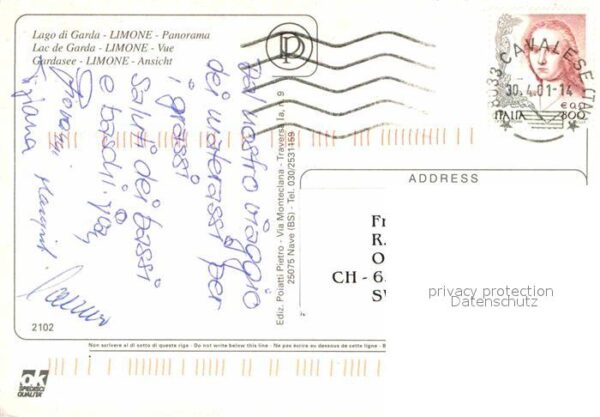 Lago di Garda - LIMONE - Panorama
Lac de Garda - LIMONE - Vue
Gardasee - LIMONE - Ansicht
Dal nostro viaggio
dei materassi per
i grassi
Saluti dei bassi
e bacini.
Tiziana
Ediz. Poiatti Pietro - Via Monteclana - Traversa Ia, n. 9
25075 Nave (BS) - Tel. 030/2531159
PD
38033 CAVALESE (TN)
30.4.01-14
€0,41
ITALIA 800
ADDRESS
Fr
R.
O
CH - 6
SV
privacy protection
Datenschutz
2102
Non scrivere al di sotto di questa riga - Do not write below this line - Ne pas écrire au dessous de cette ligne - B
ok
SPEDISCI
QUALITÀ